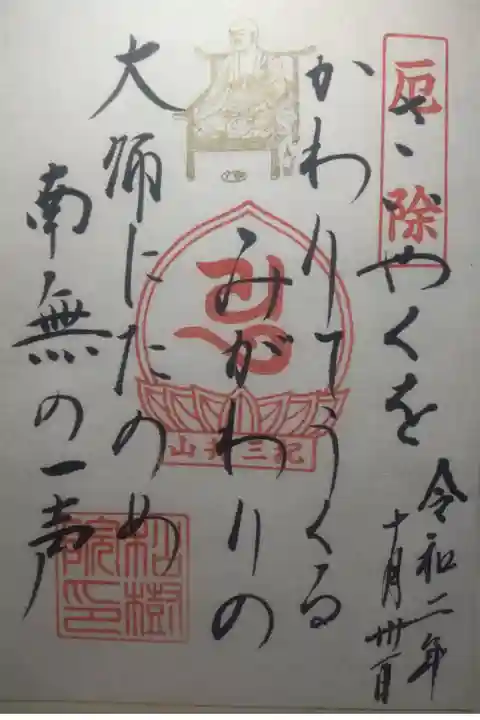 厄除
やくを
かわりてうくる
みがわりの
大師にたのめ
南無の一声
令和二年
十月卅一日
紀三井山
松樹院印